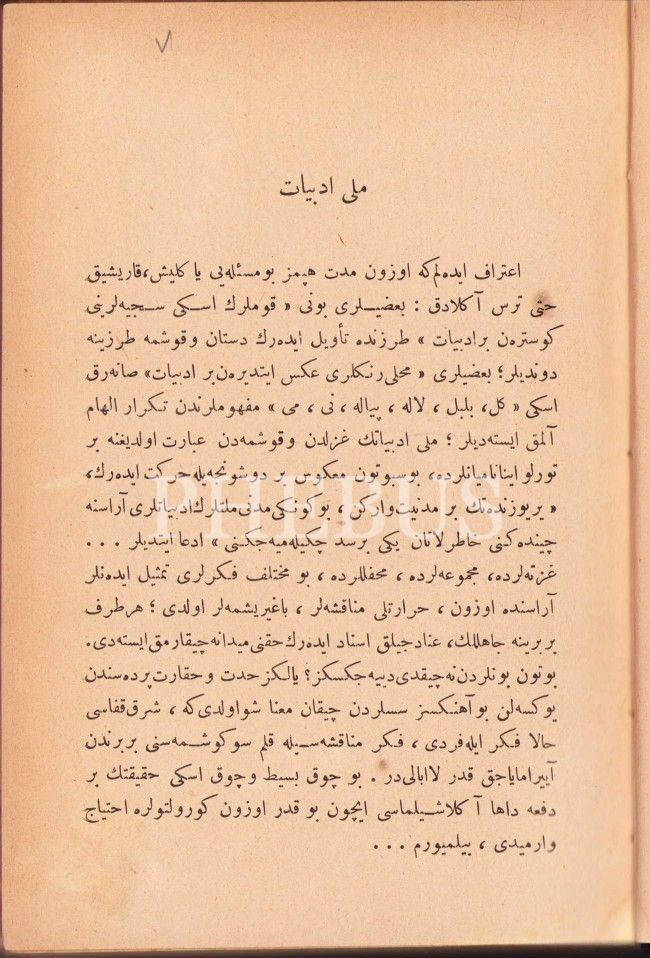 ملی ادبیات
اعتراف ایده‌لم که اوزون مدت هپمز بو مسئله‌یی یا کلیش، قاریشیق
حتی ترس آکلادق : بعضیلری بونی « قوملرك اسکی سجیه‌لرینی
کوسترەن بر ادبیات » طرزنده تأویل ایده‌رك دستان وقوشمه طرزینه
دوندیلر ؛ بعضیلری « محلی رنکلری عکس ایتدیرەن بر ادبیات » صانه‌رق
اسکی « کل ، بلبل ، لاله ، پیاله ، نی ، می » مفهوملرندن تکرار الهام
آلمق ایسته‌دیلر ؛ ملی ادبیاتك غزلدن وقوشمه‌دن عبارت اولدیغنه بر
تورلو اینانامیانلرده ، بوسبوتون معکوس بر دوشونجه‌یله حرکت ایده‌رك،
« یر یوزنده‌تك بر مدنیت وارکن ، بوکونکی مدنی ملتلرك ادبیاتلری آراسنه
چیندە‌کنی خاطرلاتان یکی برسد چکیله‌میه‌جکنی » ادعا ایتدیلر . . .
غزته‌لرده، مجموعه‌لرده ، محفللرده ، بو مختلف فکرلری تمثیل ایده‌نلر
آراسنده اوزون ، حرارتلی مناقشه‌لر ، باغیریشمه‌لر اولدی ؛ هر طرف
بربرینه جاهللك، عنادجیلق اسناد ایده‌رك حقنی میدانه چیقارمق ایسته‌دی.
بوتون بونلردن نه چیقدی دییه‌جکسکز؟ یالکز حدت و حقارت پرده‌سندن
یوکسه‌لن بو آهنکسز سسلردن چیقان معنا شو اولدی که ، شرق قفاسی
حالا فکر ایله فردی ، فکر مناقشه‌سیله قلم سوکوشمه‌سنی بربرندن
آییرامایاجق قدر لاابالی‌در . بو چوق بسیط وچوق اسکی حقیقتك بر
دفعه داها آکلاشیلماسی ایچون بو قدر اوزون کورولتولره احتیاج
وارمیدی ، بیلمیورم . . .
PHEBUS